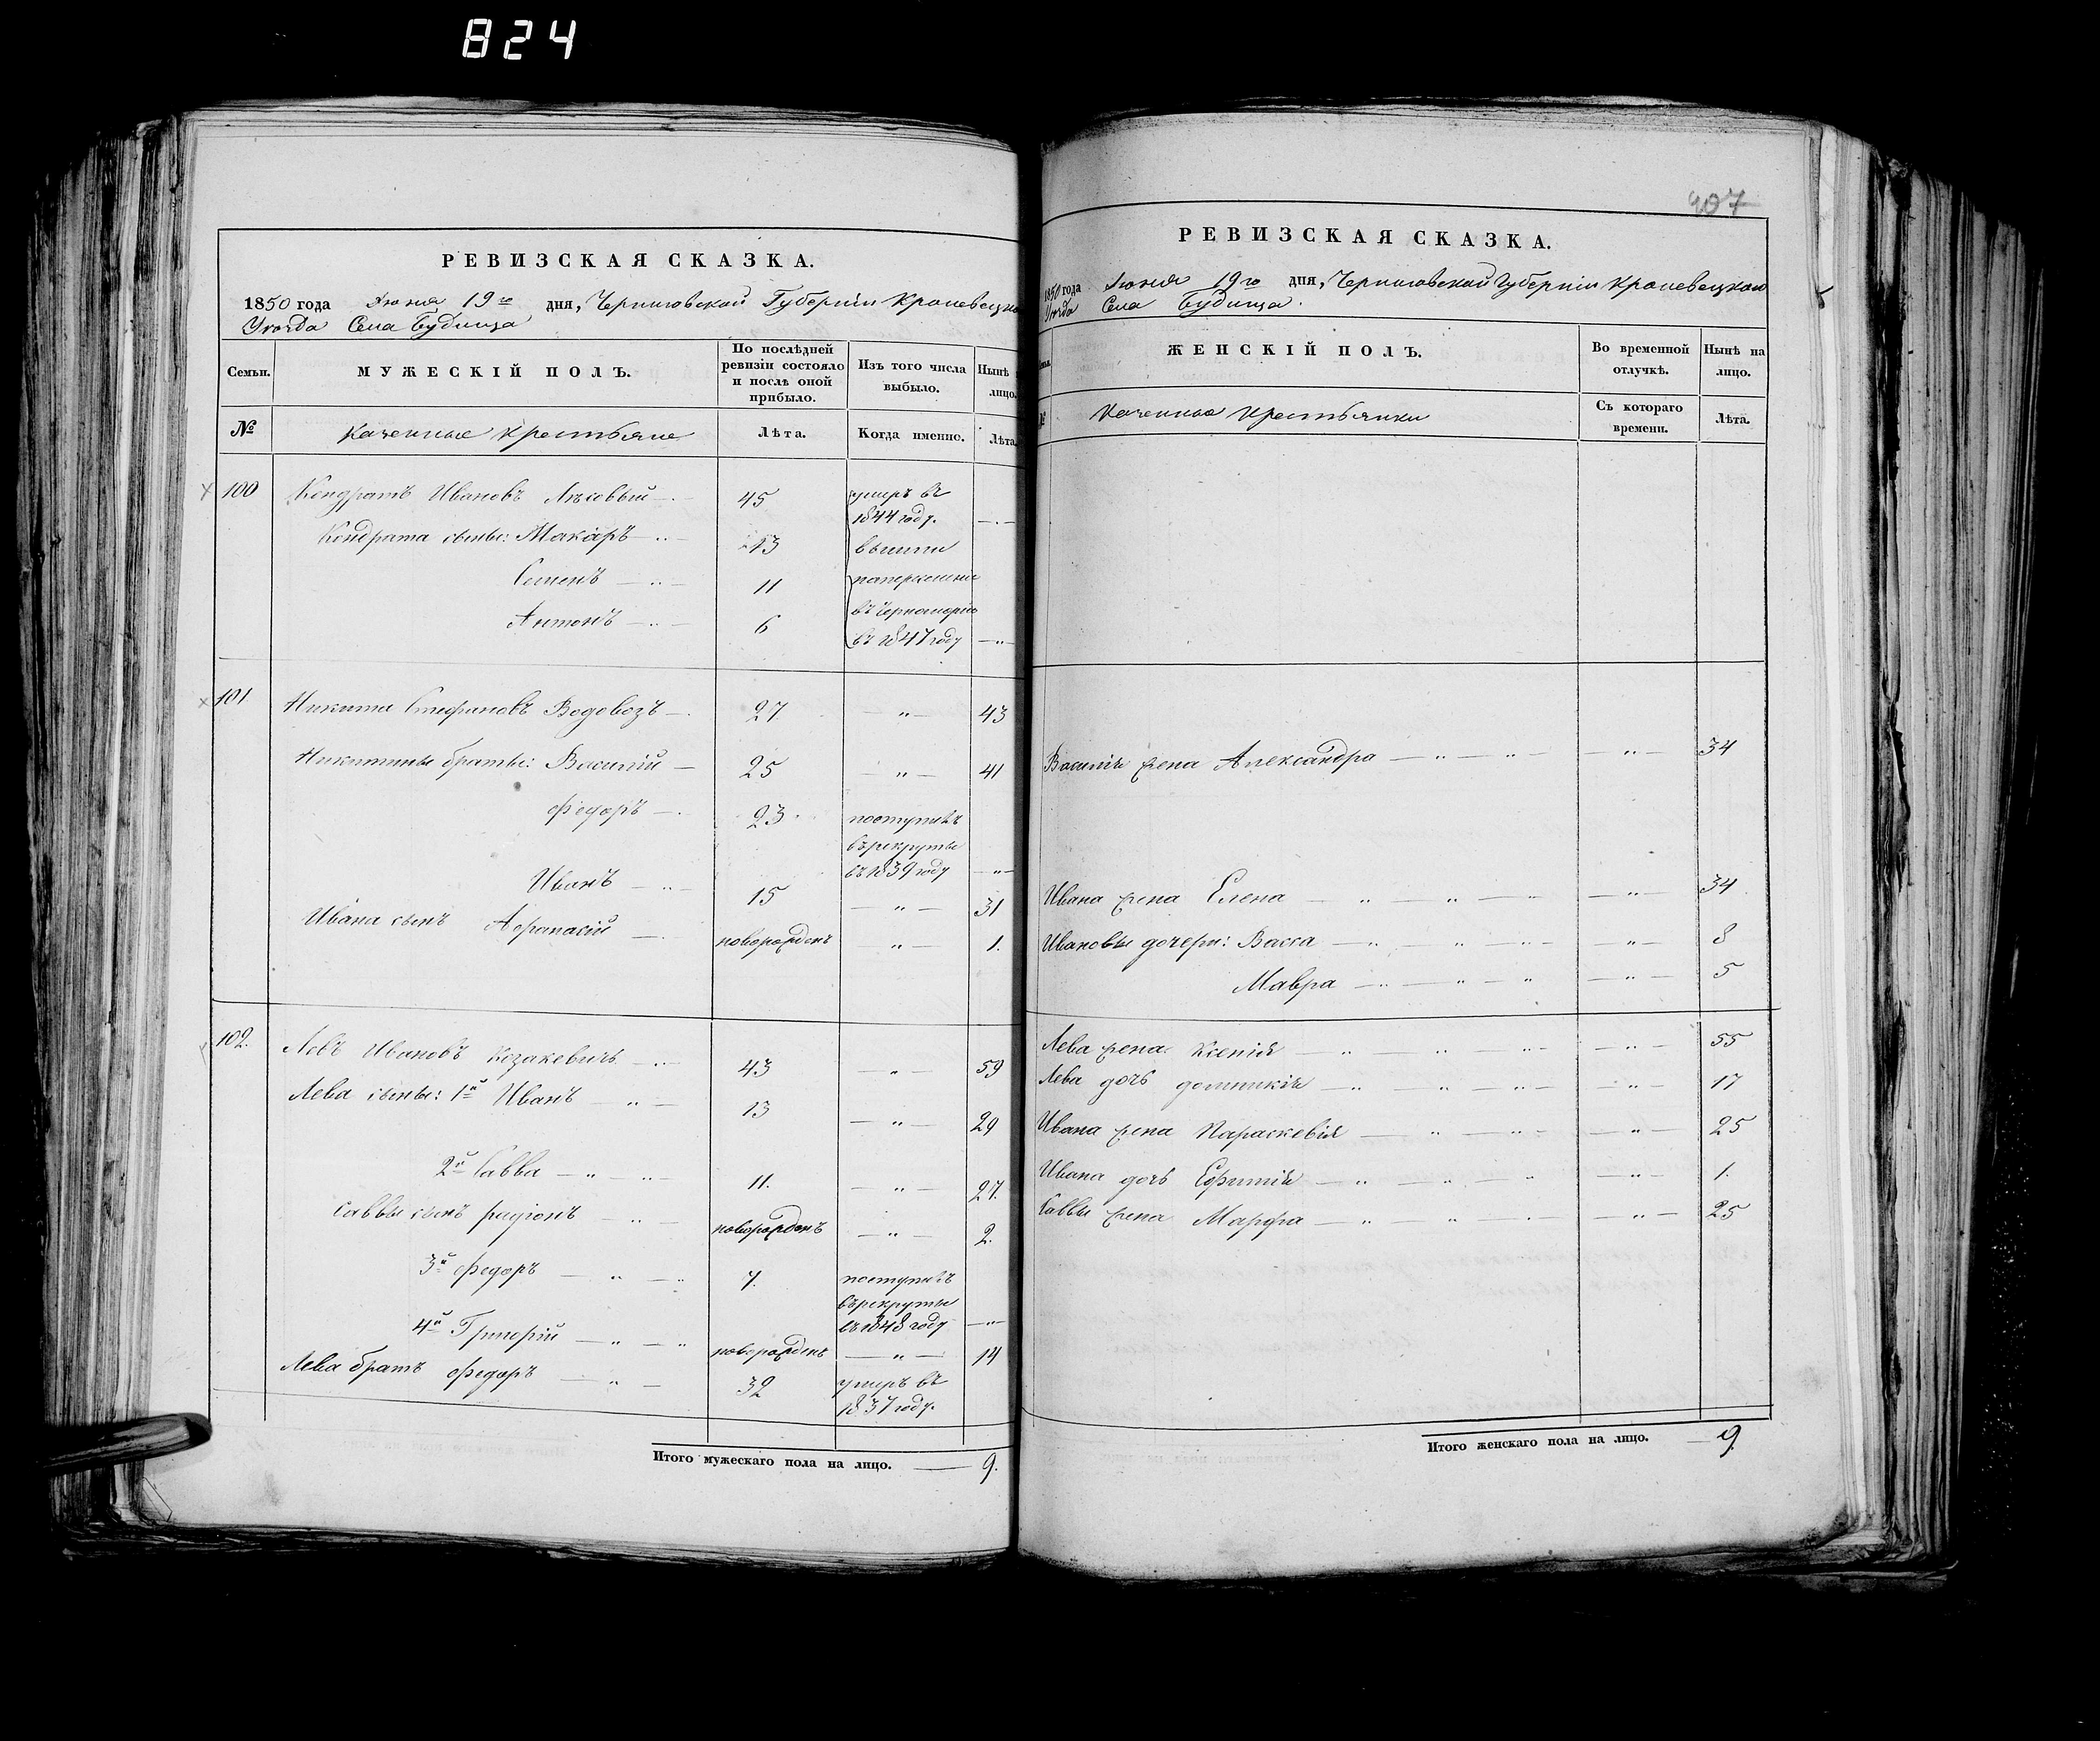 824
РЕВИЗСКАЯ СКАЗКА.
1850 года Июня 19го дня, Черниговской Губерніи Кролевецкого
Уѣзда Села Будища
Семьи. МУЖЕСКІЙ ПОЛЪ. По послѣдней ревизіи состояло и послѣ оной прибыло. Изъ того числа выбыло. Нынѣ на лицо.
№ Казенные крестьяне Лѣта. Когда именно. Лѣта.
100 Кондратъ Ивановъ 45 умеръ въ
1844 году.
Кондрата сыны: Макаръ 13 вышли
Семенъ 11
Антонъ 6 въ Черноморію
въ 1847 году
101 Никита Стефановъ Водовозъ 27 43
Никитины братья: Василій 25 41
Федоръ 23 поступилъ
въ рекруты
въ 1839 году
Иванъ 15 31
Ивана сынъ Афанасій новорожденъ 1.
102. Левъ Ивановъ Козакевичъ 43 59
Лева сыны: 1й Иванъ 13 29
2й Савва 11. 27.
Саввы сынъ Радіонъ новорожденъ 2.
3й Федоръ 7. поступилъ
въ рекруты
въ 1848 году
4й Григорій новорожденъ 14
Лева братъ Федоръ 32 умеръ въ
1837 году.
Итого мужескаго пола на лицо. 9.
907
РЕВИЗСКАЯ СКАЗКА.
1850 года Июня 19го дня, Черниговской Губерніи Кролевецкого
Уѣзда Села Будища.
ЖЕНСКІЙ ПОЛЪ. Во временной отлучкѣ. Нынѣ на лицо.
№ Казенные Крестьянки Съ котораго времени. Лѣта.
Василія жена Александра 34
Ивана жена Елена 34
Ивановы дочери: Васса 8
Мавра 5
Лева жена Ксенія 55
Лева дочь Домникія 17
Ивана жена Параскевія 25
Ивана дочь Ефимія 1.
Саввы жена Марфа 25
Итого женскаго пола на лицо. 9.